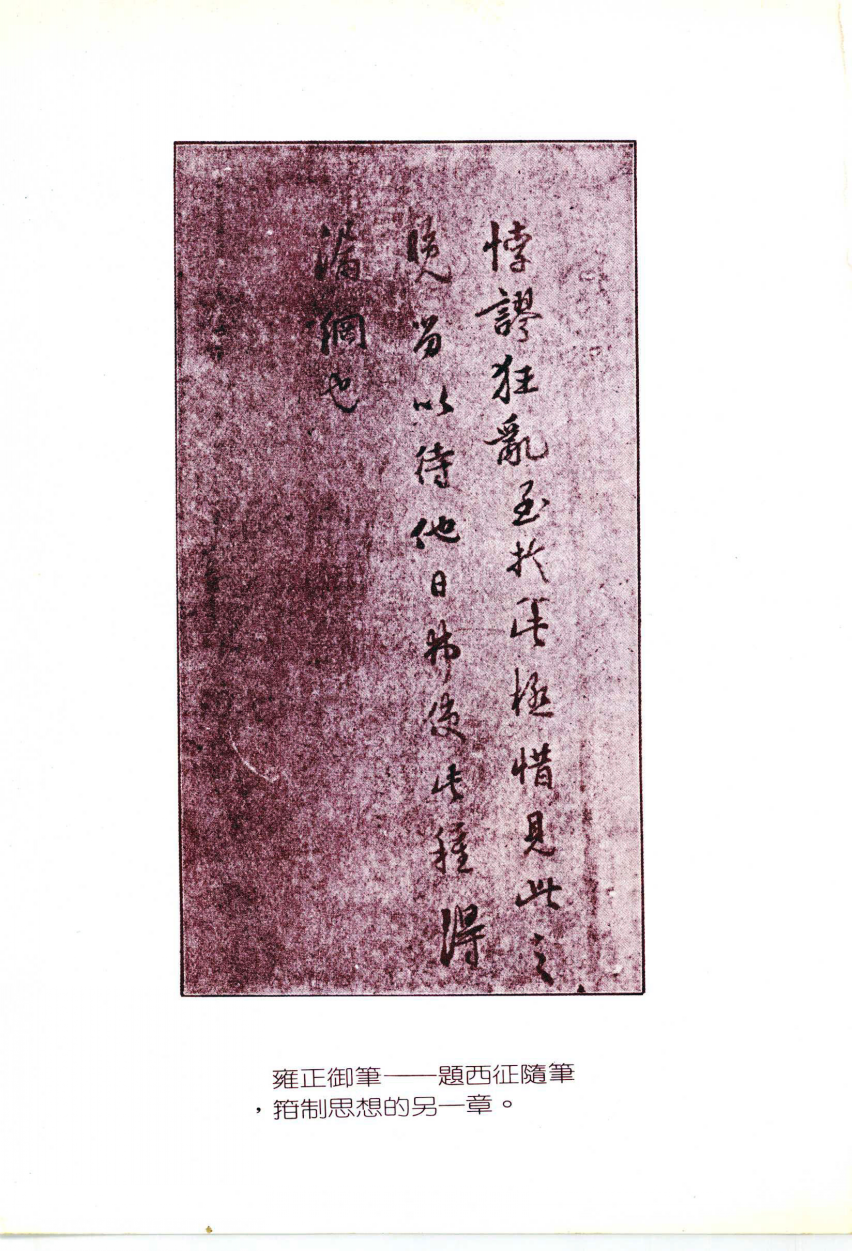 悖謬狂亂至於此極惜見此之
晚留以待他日弗使此種得
漏網也
雍正御筆——題西征隨筆
，箝制思想的另一章。